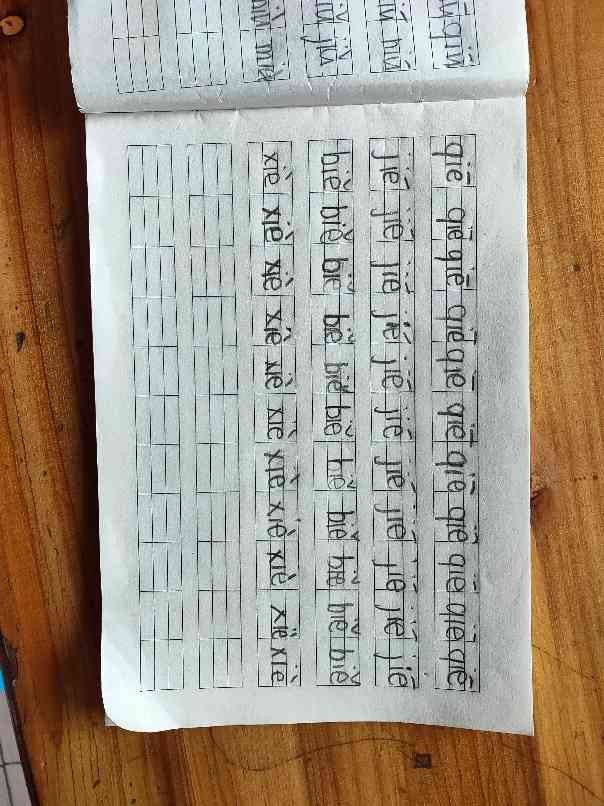 qiū
niú
jiǔ
miù
qiē qiē qiē qiē qiē qiē qiē qiē qiē qiē qiē
jié jié jié jié jié jié jié jié jié jié jié
biě biě biě biě biě biě biě biě biě biě biě
xiè xiè xiè xiè xiè xiè xiè xiè xiè xiè xiè